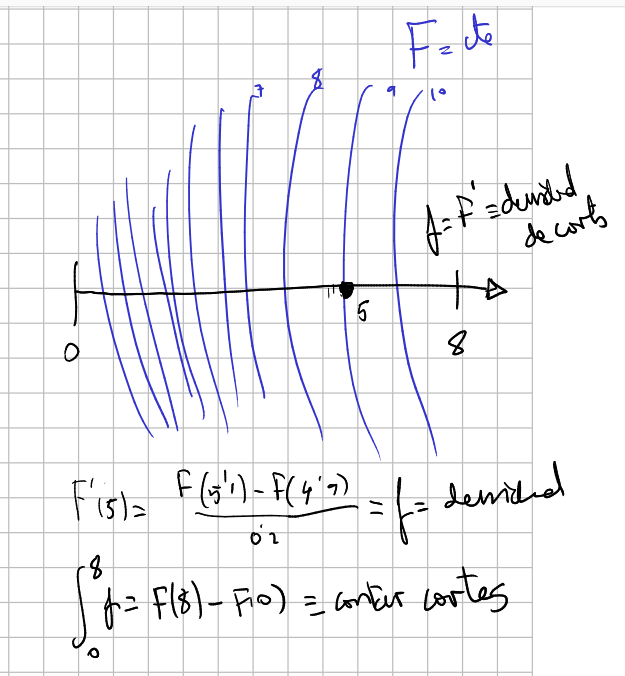 F = cte
7 8 9 10
f = F' ≡ densidad
de cortes
0 5 8
F'(5) = F(5'1) - F(4'9) / 0'2 = f = densidad
∫₀⁸ f = F(8) - F(0) ≡ contar cortes